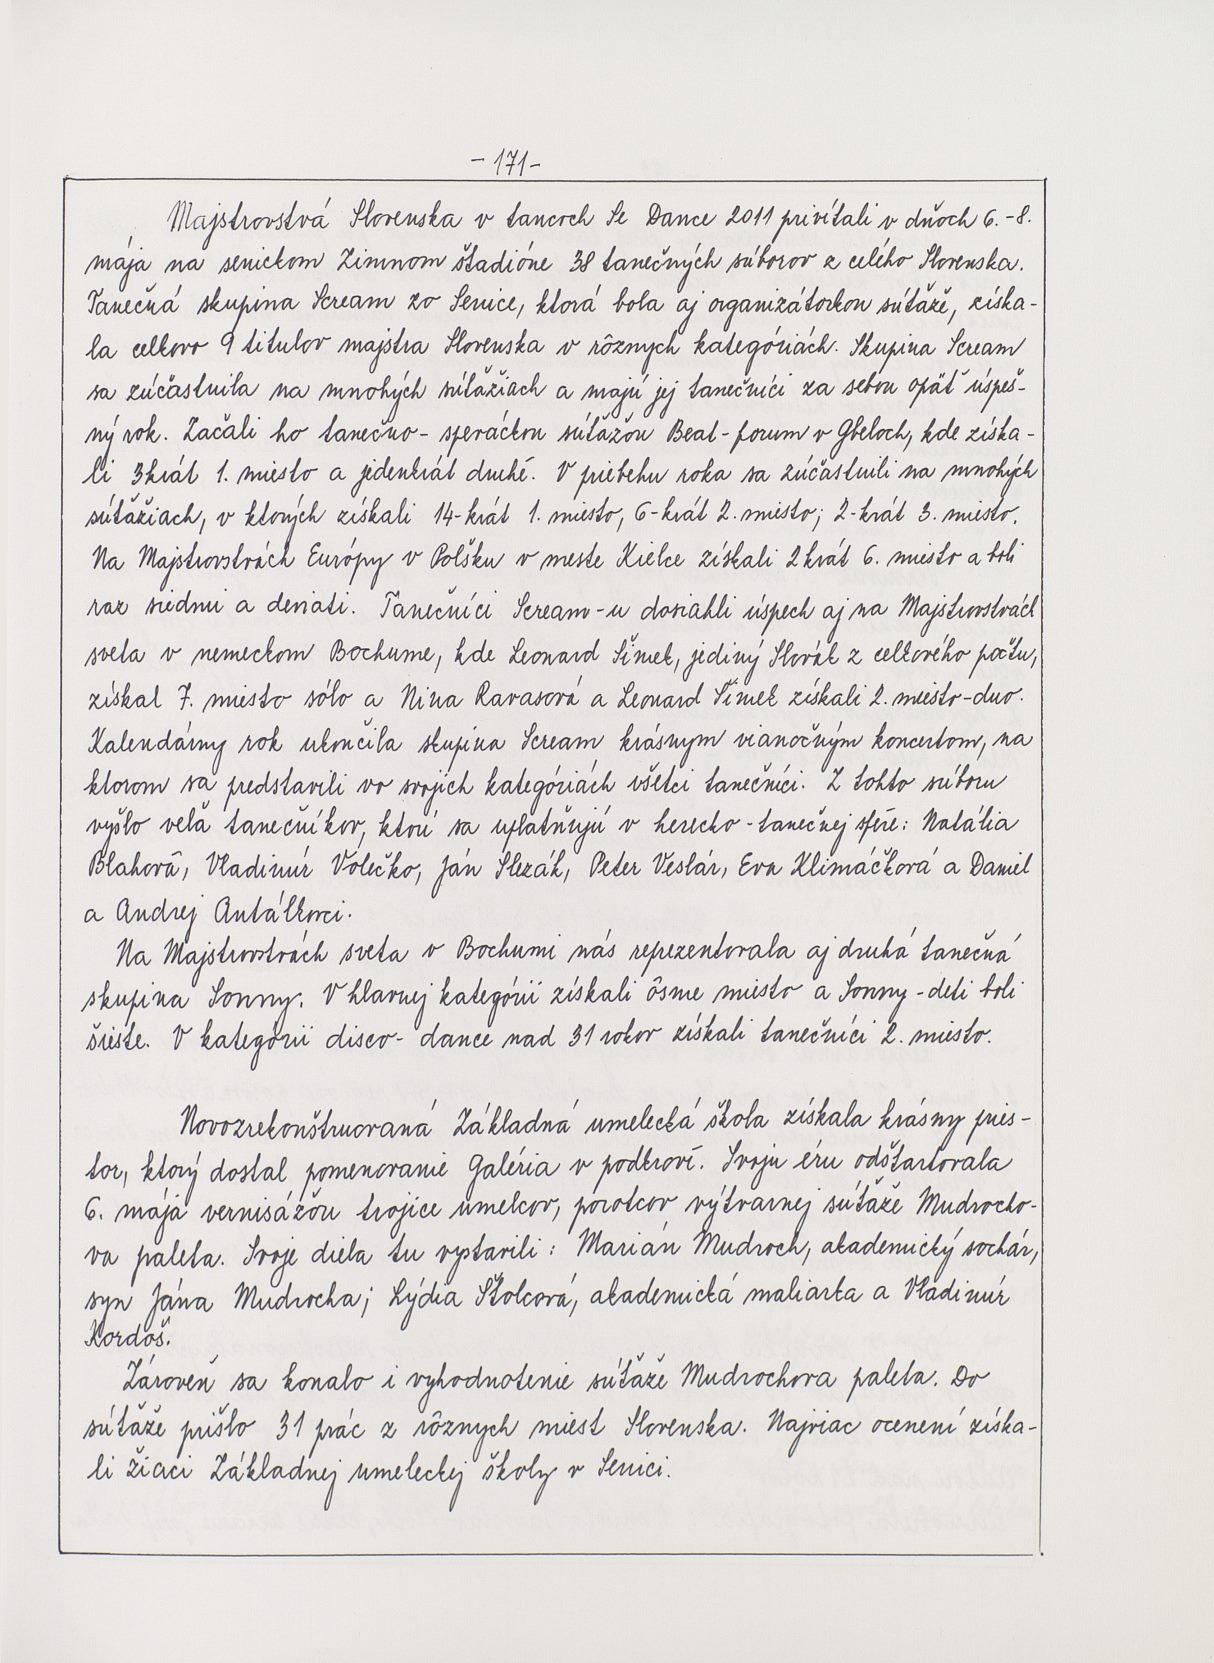 - 171 -
Majstrovstvá Slovenska v tancoch Se Dance 2011 privítali v dňoch 6. - 8.
mája na senickom Zimnom štadióne 38 tanečných súborov z celého Slovenska.
Tanečná skupina Scream zo Senice, ktorá bola aj organizátorkou súťaže, získa-
la celkovo 9 titulov majstra Slovenska v rôznych kategóriách. Skupina Scream
sa zúčastnila na mnohých súťažiach a majú jej tanečníci za sebou opäť úspeš-
ný rok. Začali ho tanečno - speváckou súťažou Beat - forum v Gbeloch, kde získa -
li 3krát 1. miesto a jedenkrát druhé. V priebehu roka sa zúčastnili na mnohých
súťažiach, v ktorých získali 14-krát 1. miesto, 6-krát 2. miesto; 2-krát 3. miesto.
Na Majstrovstvách Európy v Poľsku v meste Kielce získali 2krát 6. miesto a boli
raz siedmi a deviati. Tanečníci Scream-u dosiahli úspech aj na Majstrovstvách
sveta v nemeckom Bochume, kde Leonard Šimek, jediný Slovák z celkového počtu,
získal 7. miesto sólo a Nina Ravasová a Leonard Šimek získali 2. miesto - duo.
Kalendárny rok ukončila skupina Scream krásnym vianočným koncertom, na
ktorom sa predstavili vo svojich kategóriách všetci tanečníci. Z tohto súboru
vyšlo veľa tanečníkov, ktorí sa uplatňujú v herecko - tanečnej sfére: Natália
Blahová, Vladimír Volečko, Ján Slezák, Peter Veslár, Eva Klimáčková a Daniel
a Andrej Antálkovci.
Na Majstrovstvách sveta v Bochumi nás reprezentovala aj druhá tanečná
skupina Sonny. V hlavnej kategórii získali ôsme miesto a Sonny - deti boli
šieste. V kategórii disco - dance nad 31 rokov získali tanečníci 2. miesto.
Novozrekonštruovaná Základná umelecká škola získala krásny pries-
tor, ktorý dostal pomenovanie Galéria v podkroví. Svoju éru odštartovala
6. mája vernisážou trojice umelcov, porotcov výtvarnej súťaže Mudrocho-
va paleta. Svoje diela tu vystavili: Marián Mudroch, akademický sochár,
syn Jána Mudrocha; Lýdia Štolcová, akademická maliarka a Vladimír
Kordoš.
Zároveň sa konalo i vyhodnotenie súťaže Mudrochova paleta. Do
súťaže prišlo 31 prác z rôznych miest Slovenska. Najviac ocenení získa-
li žiaci Základnej umeleckej školy v Senici.